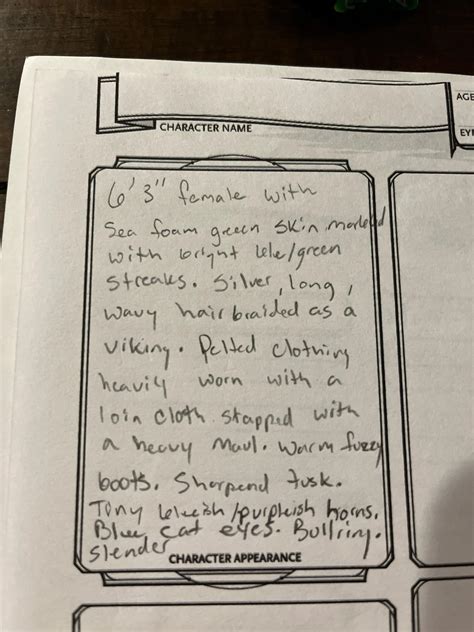 AGE
CHARACTER NAME
EYE
6'3" female with
Sea foam green skin marked
with bright blue/green
streaks. Silver, long,
wavy hair braided as a
viking. Pelted clothing
heavily worn with a
loin cloth stapped with
a heavy maul. Warm fuzzy
boots. Sharpend tusk.
Tiny blueish/purpleish horns.
Blue cat eyes. Bullring.
Slender
CHARACTER APPEARANCE